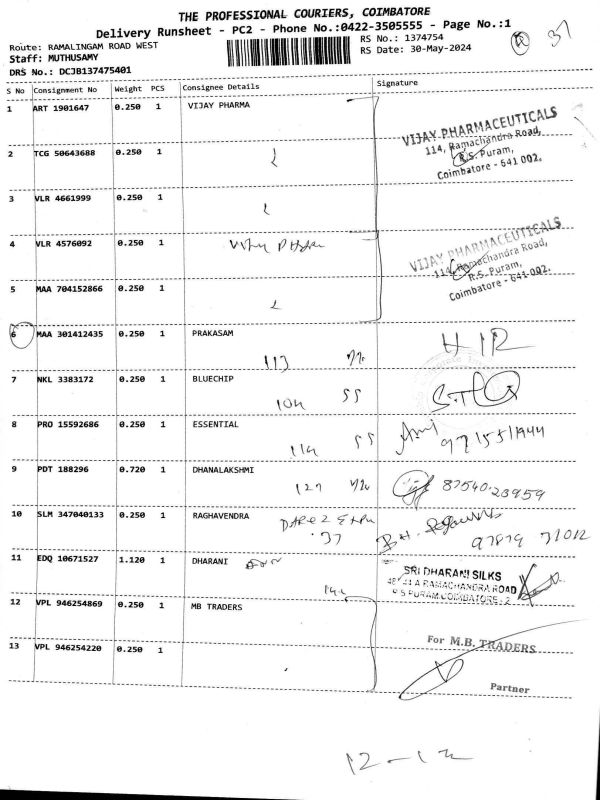 THE PROFESSIONAL COURIERS, COIMBATORE
Delivery Runsheet - PC2 - Phone No.:0422-3505555 - Page No.:1
Route: RAMALINGAM ROAD WEST
RS No.: 1374754
37
Staff: MUTHUSAMY
RS Date: 30-May-2024
DRS No.: DCJB137475401
S No Consignment No Weight PCS Consignee Details Signature
1 ART 1901647 0.250 1 VIJAY PHARMA
VIJAY PHARMACEUTICALS
114, Ramachandra Road,
R.S. Puram,
Coimbatore - 641 002.
2 TCG 50643688 0.250 1
3 VLR 4661999 0.250 1
4 VLR 4576092 0.250 1
VIJAY PHARMACEUTICALS
114, Ramachandra Road,
R.S. Puram,
Coimbatore - 641 002.
5 MAA 704152866 0.250 1
6 MAA 301412435 0.250 1 PRAKASAM
113
7 NKL 3383172 0.250 1 BLUECHIP
104 SS
8 PRO 15592686 0.250 1 ESSENTIAL
114 SS
9715551944
9 PDT 188296 0.720 1 DHANALAKSHMI
127
87540-23959
10 SLM 347040133 0.250 1 RAGHAVENDRA
37
97879 71012
11 EDQ 10671527 1.120 1 DHARANI
SRI DHARANI SILKS
RAMACHANDRA ROAD
R S PURAM COIMBATORE - 2
12 VPL 946254869 0.250 1 MB TRADERS
For M.B. TRADERS
13 VPL 946254220 0.250 1
Partner